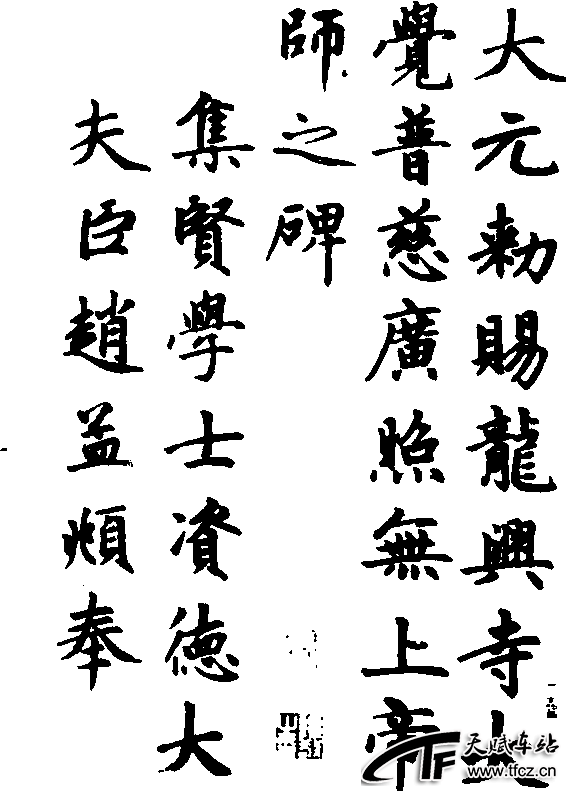 大元勅賜龍興寺大
覺普慈廣照無上帝
師之碑
集賢學士資德大
夫臣趙孟頫奉
CTF 天赋车站
www.tfcz.cn